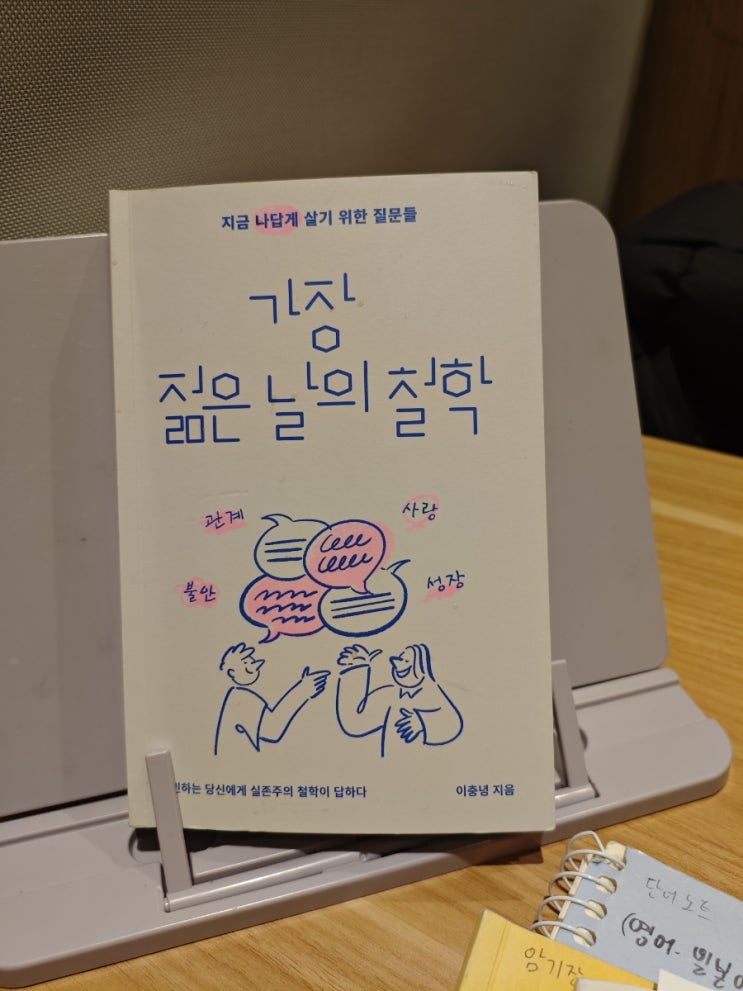 지금 나답게 살기 위한 질문들
가장
젊은 날의 철학
관계
사랑
불안
성장
당신에게 실존주의 철학이 답하다
이충녕 지음
단어 노트
(영어-
암기장